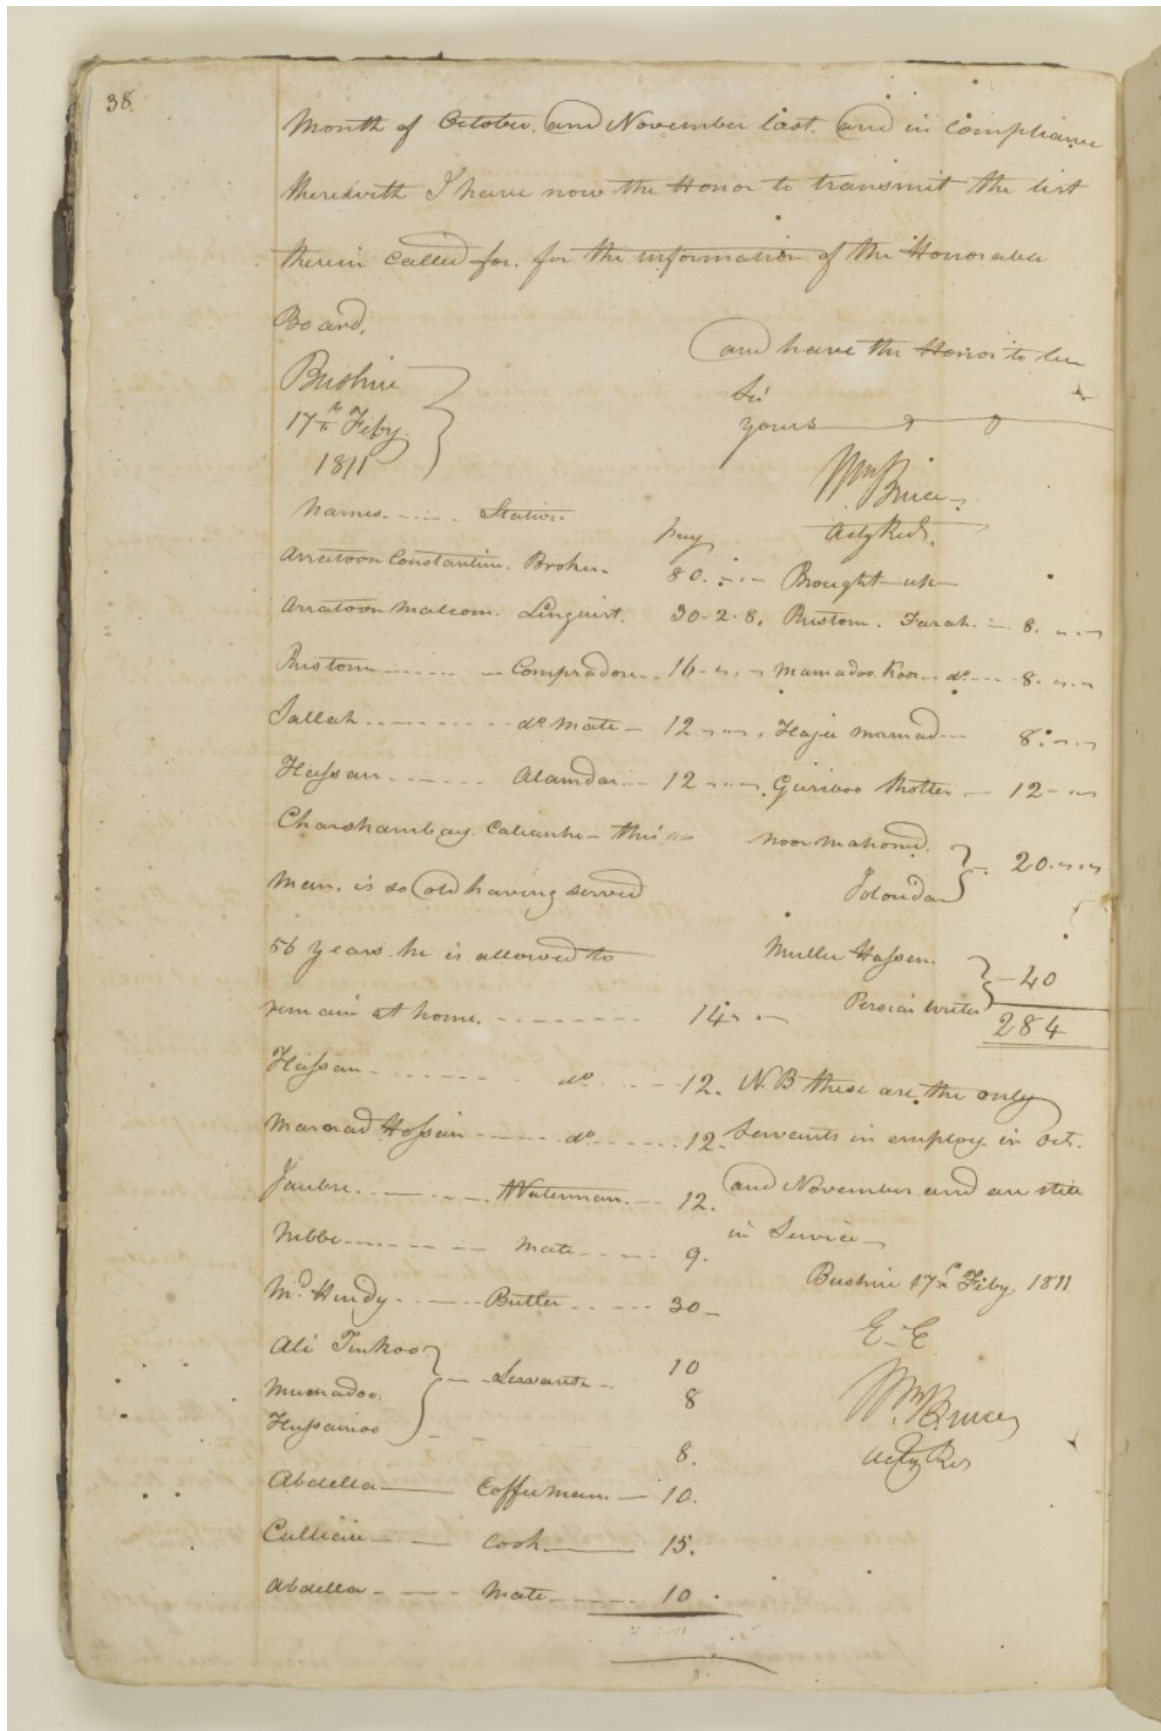 38.
Month of October. and November last. and in Compliance
therewith I have now the Honor to transmit the list
therein called for. for the information of the Honorable
Board.
and have the Honor to be
Sir
yours
Bushire
17th Feby.
1811
Wm Bruce
Actg Rest.
Names. Station pay
Arratoon Constantine. Broker. 80.
Arratoon Malcom. Linguist. 30-2-8.
Rustom Compradore 16
Sallah do mate 12
Hassan Alamdar 12
Charshambay. - this
Man. is so old having served
56 years. he is allowed to
remain at home. 14
Hassan do 12.
Mamad Hossein do 12.
Jaubre. Waterman. 12.
Nebbe mate 9.
Md Hindy Butler 30
Ali 10
Mumadoo. Servants 8
Hussainoo 8.
Abdella Coffeeman 10.
Cook 15.
Abdella Mate 10.
Brought up
Rustom. Farah. 8.
Mamadoo do 8.
Hajee Mamad 8.
12
Noor Mahomd.
20.
Mulla Hassen.
Persian Writer 40
284
N.B. these are the only
Servants in employ in Oct.
and November and are still
in Service
Bushire 17th Feby. 1811
E.E.
Wm Bruce
Actg Res